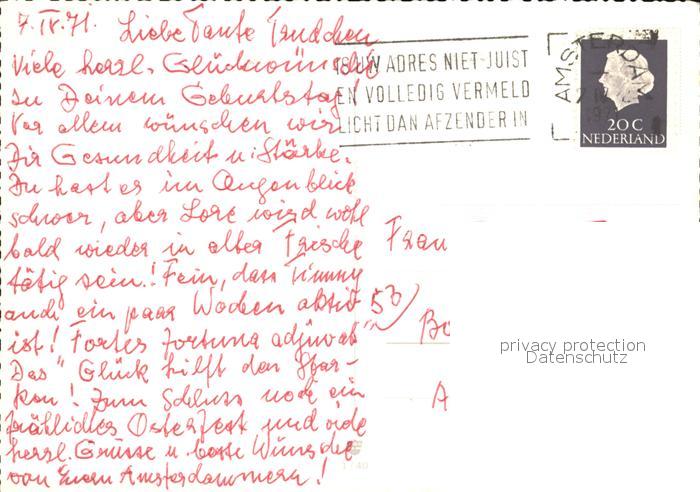 7.IV.71. Liebe Tante Trudchen
Viele herzl. Glückwünsche
zu Deinem Geburtstag!
Vor allem wünschen wir
Dir Gesundheit u. Stärke.
Du hast es im Augenblick
schwer, aber Lore wird wohl
bald wieder in alter Frische
tätig sein! Fein, dass Timmy
auch ein paar Wochen aktiv
ist! "Fortes fortuna adjuvat"
Das Glück hilft den Star-
ken! Zum Schluss noch ein
fröhliches Osterfest und viele
herzl. Grüsse u. beste Wünsche
von Euern Amsterdammern!
IS UW ADRES NIET JUIST
EN VOLLEDIG VERMELD
LICHT DAN AFZENDER IN
AMSTERDAM
20 C
NEDERLAND
Frau
53
Bo
A
privacy protection
Datenschutz